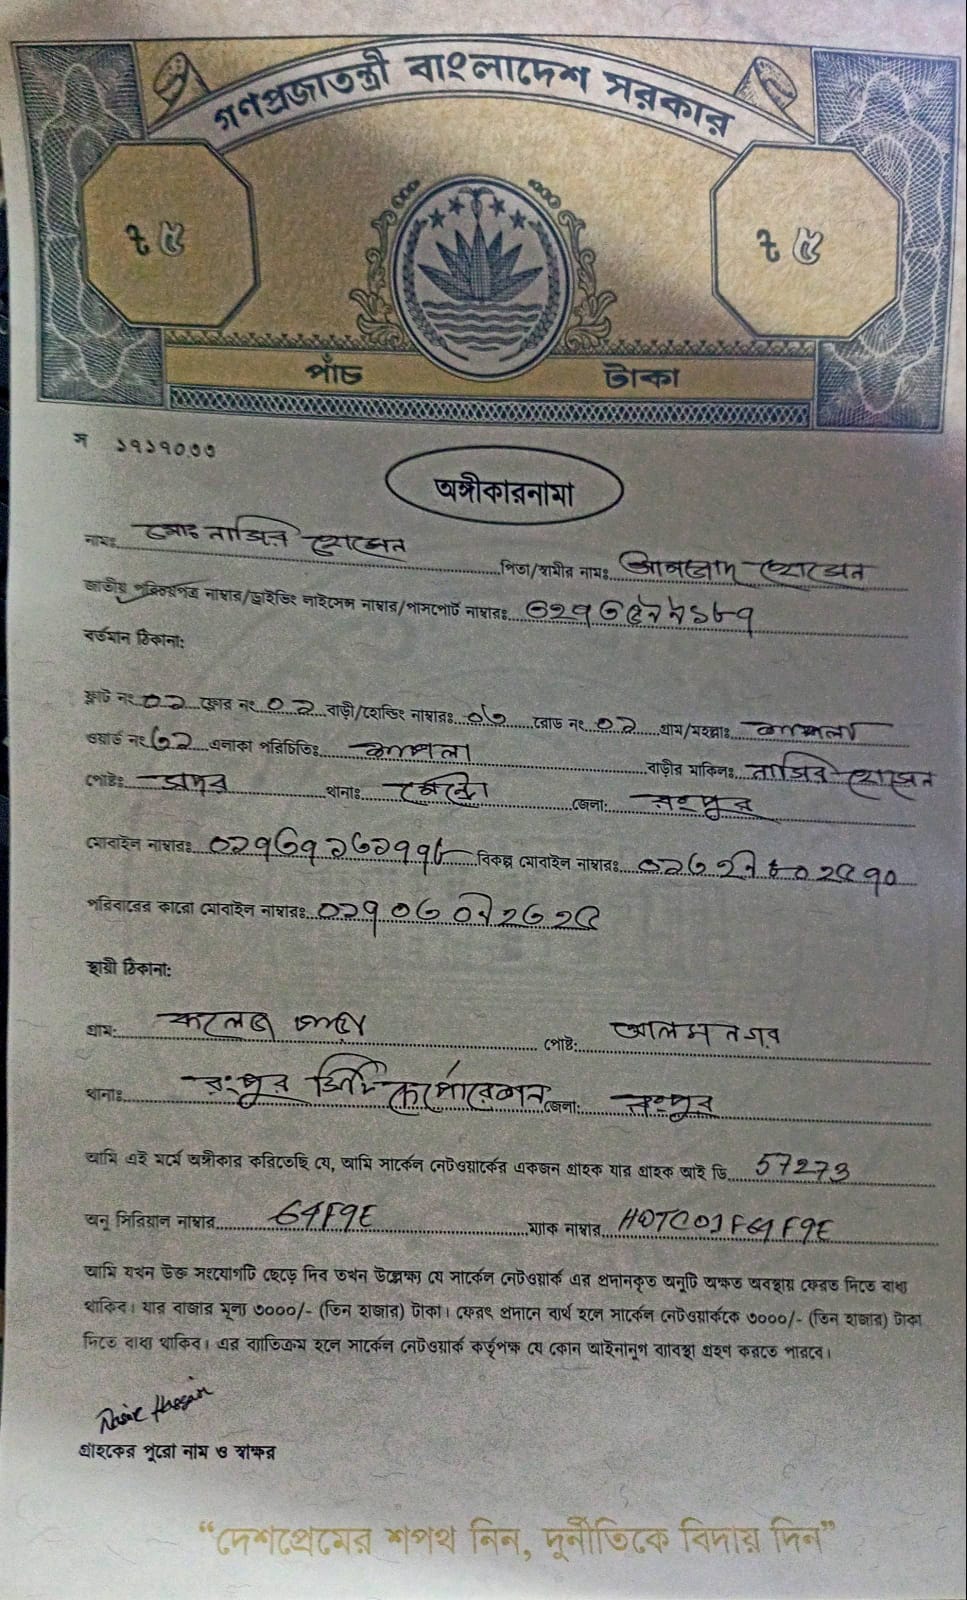 গণপ্রজাতন্ত্রী বাংলাদেশ সরকার
৳ ৫ ৳ ৫
পাঁচ টাকা
অঙ্গীকারনামা
নামঃ মোঃ নাসির হোসেন পিতা/স্বামীর নামঃ হোসেন
জাতীয় পরিচয়পত্র নাম্বার/ড্রাইভিং লাইসেন্স নাম্বার/পাসপোর্ট নাম্বারঃ
বর্তমান ঠিকানা:
ফ্লাট নং ০১ ফ্লোর নং ০১ বাড়ী/হোল্ডিং নাম্বারঃ রোড নং ০১ গ্রাম/মহল্লাঃ
ওয়ার্ড নং এলাকা পরিচিতিঃ বাড়ীর মালিকঃ নাসির হোসেন
পোষ্টঃ থানাঃ জেলা: রংপুর
মোবাইল নাম্বারঃ বিকল্প মোবাইল নাম্বারঃ
পরিবারের কারো মোবাইল নাম্বারঃ
স্থায়ী ঠিকানা:
গ্রাম: কলেজ পাড়া পোষ্ট: আলম নগর
থানাঃ রংপুর সিটি কর্পোরেশন জেলা: রংপুর
আমি এই মর্মে অঙ্গীকার করিতেছি যে, আমি সার্কেল নেটওয়ার্কের একজন গ্রাহক যার গ্রাহক আই ডি 57273
অনু সিরিয়াল নাম্বার 64F9E ম্যাক নাম্বার HDTC01F64F9E
আমি যখন উক্ত সংযোগটি ছেড়ে দিব তখন উল্লেক্ষ্য যে সার্কেল নেটওয়ার্ক এর প্রদানকৃত অনুটি অক্ষত অবস্থায় ফেরত দিতে বাধ্য
থাকিব। যার বাজার মূল্য ৩০০০/- (তিন হাজার) টাকা। ফেরৎ প্রদানে ব্যর্থ হলে সার্কেল নেটওয়ার্ককে ৩০০০/- (তিন হাজার) টাকা
দিতে বাধ্য থাকিব। এর ব্যাতিক্রম হলে সার্কেল নেটওয়ার্ক কর্তৃপক্ষ যে কোন আইনানুগ ব্যাবস্থা গ্রহণ করতে পারবে।
Nasir Hossain
গ্রাহকের পুরো নাম ও স্বাক্ষর
“দেশপ্রেমের শপথ নিন, দুর্নীতিকে বিদায় দিন”